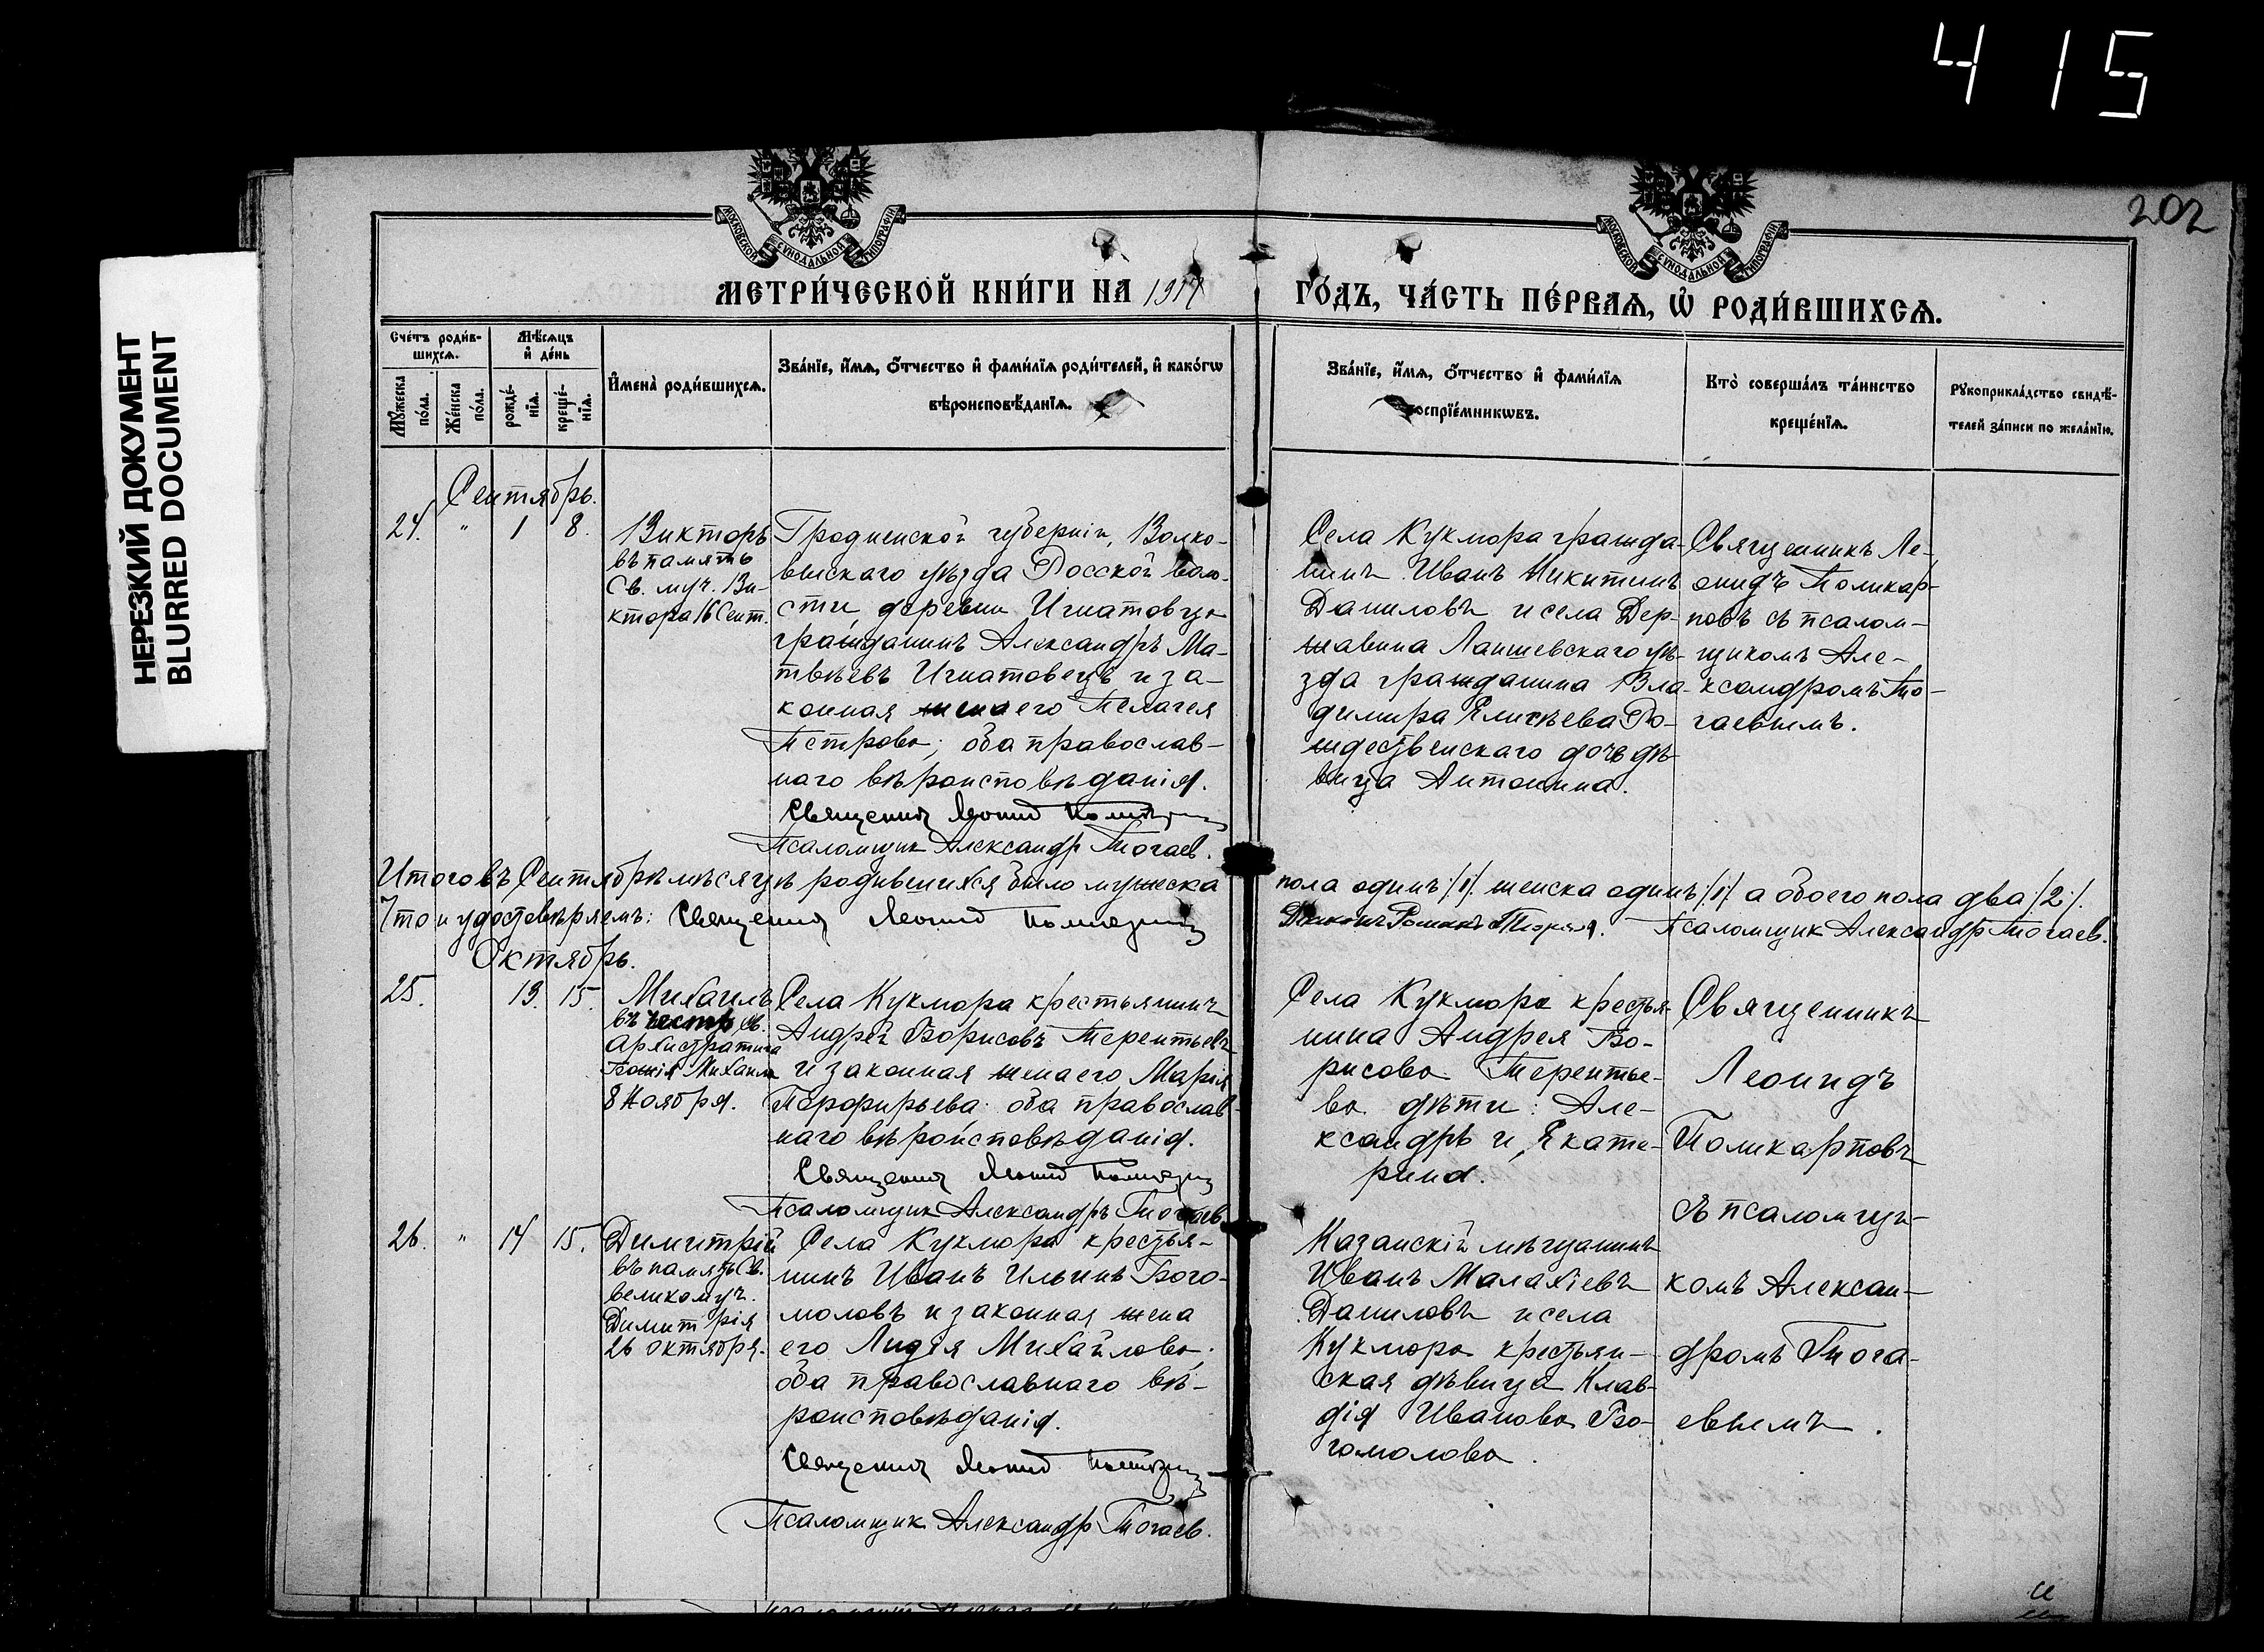 415
202
НЕРЕЗКИЙ ДОКУМЕНТ
BLURRED DOCUMENT
МОСКОВСКОЙ СѴНОДАЛЬНОЙ ТИПОГРАФІИ
МОСКОВСКОЙ СѴНОДАЛЬНОЙ ТИПОГРАФІИ
МЕТРИ́ЧЕСКОЙ КНИ́ГИ НА 1917 ГО́ДЪ, ЧА́СТЬ ПЕ́РВАѦ, Ѡ҆ РОДИ́ВШИХСѦ.
Сче́тъ роди́в-
шихсѧ.
Мѣ́сѧцъ
и҆ де́нь
Мꙋ́жеска
по́ла.
Же́нска
по́ла.
рожде́-
нїѧ.
креще́-
нїѧ.
И҆мена̀ роди́вшихсѧ.
Зва́нїе, и҆́мѧ, ѻ҆́тчество и҆ фами́лїѧ роди́телей, и҆ како́гѡ
вѣроисповѣ́данїѧ.
Зва́нїе, и҆́мѧ, ѻ҆́тчество и҆ фами́лїѧ
воспрїе́мникѡвъ.
Кто̀ соверша́лъ та́инство
креще́нїѧ.
Рꙋкоприкла́дство свидѣ́-
телей за́писи по жела́нїю.
Сентябрь.
24. " 1 8.
Викторъ
въ память
Св. муч. Ви-
ктора 16 Сент.
Гродненской губерніи, Волко-
выскаго уѣзда Росской воло-
сти, деревни Игнатовцы
гражданинъ Александръ Ма-
твѣевъ Игнатовецъ и за-
конная жена его Пелагея
Петрова; оба православ-
наго вѣроисповѣданія.
Священник Леонид Поликарпов
Псаломщик Александр Тогаев.
Села Кукмора гражда-
нинъ Иванъ Никитинъ
Даниловъ и села Дер-
жавина Лаишевскаго уѣ-
зда гражданина Вла-
димира Елисѣева Ро-
ждественскаго дочь дѣ-
вица Антонина.
Священникъ Ле-
онидъ Поликар-
повъ съ псалом-
щикомъ Але-
ксандромъ То-
гаевымъ.
Итого въ Сентябрѣ мѣсяцѣ родившихся было мужеска пола одинъ /1/. женска одинъ /1/ а обоего пола два /2/.
Что и удостовѣряемъ: Священник Леонид Поликарпов Псаломщик Александр Тогаев.
Октябрь.
25. 13. 15.
Михаилъ
въ честь Св.
Архистратига
Божія Михаила
8 Ноября.
Села Кукмора крестьянинъ
Андрей Борисовъ Терентьевъ
и законная жена его Марія
Порфирьева оба православ-
наго вѣроисповѣданія.
Священник Леонид Поликарпов
Псаломщик Александръ Тогаев
Села Кукмора крестья-
нина Андрея Бо-
рисова Терентье-
ва дѣти: Але-
ксандръ и Екате-
рина.
Священникъ
Леонидъ
Поликарповъ
съ псаломщи-
комъ Алексан-
дромъ Тога-
евымъ.
26. " 14 15.
Димитрій
въ память Св.
великомуч.
Димитрія
26 октября.
Села Кукмора крестья-
нинъ Иванъ Ильинъ Бого-
моловъ и законная жена
его Лидія Михайлова;
оба православнаго вѣ-
роисповѣданія.
Священник Леонид Поликарпов
Псаломщик Александр Тогаев.
Казанскій мѣщанинъ
Иванъ Малахіевъ
Даниловъ и села
Кукмора крестьян-
ская дѣвица Клав-
дія Иванова Бо-
гомолова.